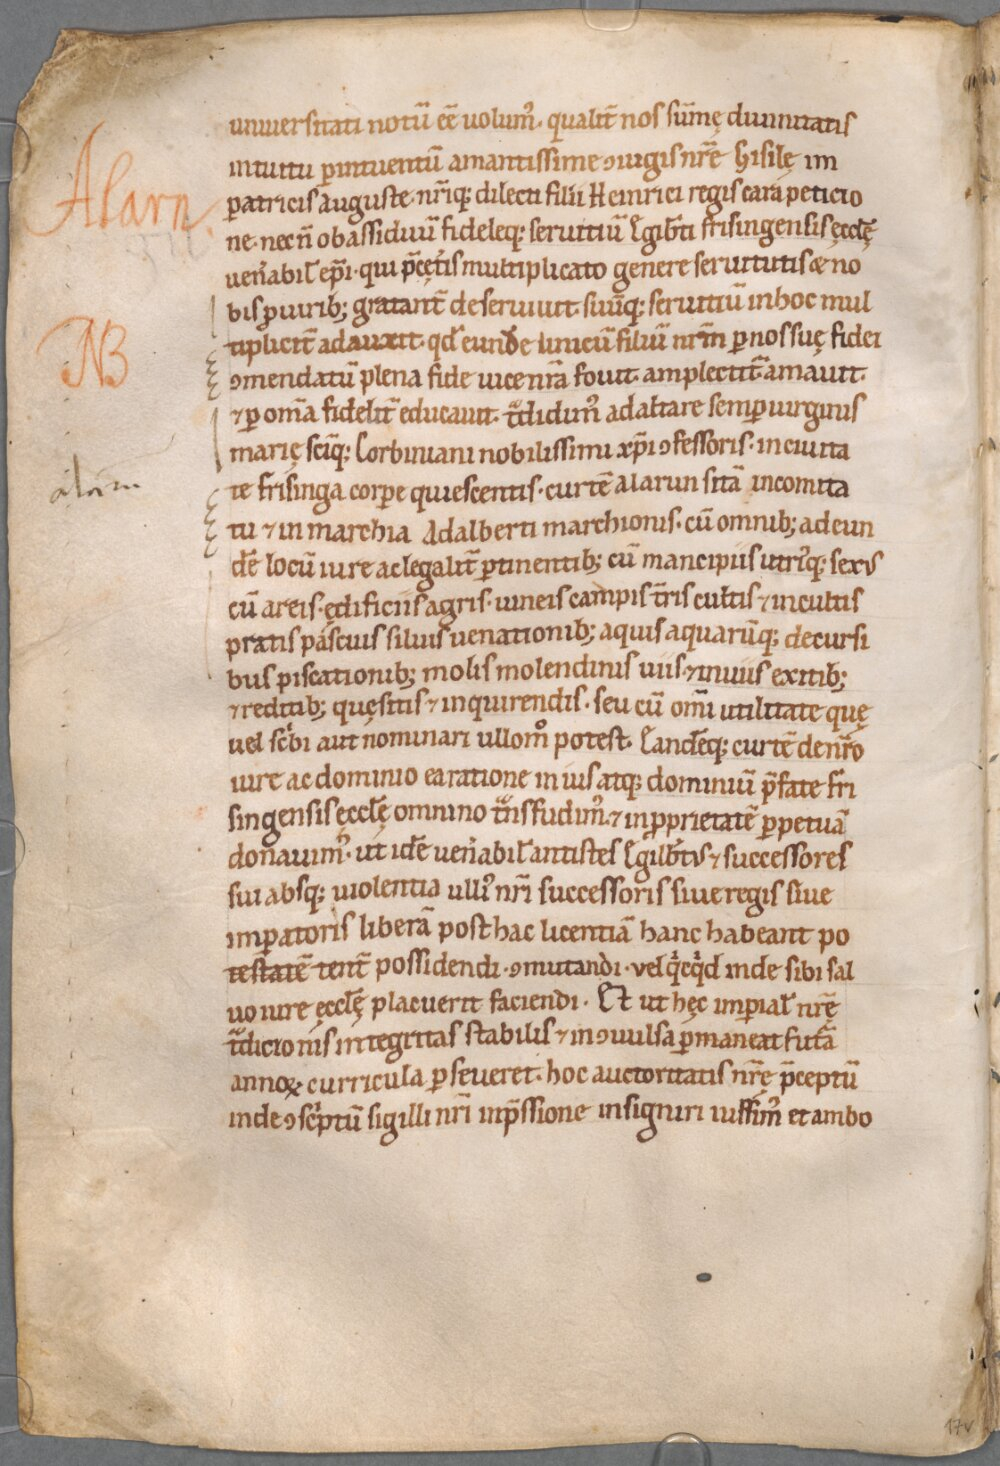 uniuersitati notū eē uolum᷒. qualit̄ nos sūmę diuinitatis
Alarn.
intuitu ꝑ interuentū amantissime ꝯiugis nr̄e hisilę im
ꝑatricis auguste. nr̄iq; dilecti filii Heinrici regis cara peticio
ne. necn̄ ob assiduū fideleq; seruitiū Egilb̄ti frisingensis ęccl̄ę
uen̄abil̄ ep̄i. qui p̄cęt̄is multiplicato genere seruitutis æ no
bis ꝑ uirib; gratant̄ deseruiuit. suūq; seruitiū in hoc mul
tiplicit̄ adauxit. qd̄ eunde unicū filiū nr̄m ꝑ nos suę fidei
NB
ꝯmendatū plena fide uice nr̄a fouit. amplectit̄ amauit.
⁊ ꝑ om̄a fidelit̄ educauit. t̄didim᷒ ad altare semꝑ uirginis
marię sc̄iq; Corbiniani nobilissimi xp̄i ꝯfessoris. in ciuita
te frisinga corꝑe quiescentis. curtē alarun sitā in comita
alarn
tu ⁊ in marchia Adalberti marchionis. cū omnib; ad eun
dē locū iure ac legalit̄ ꝑtinentib; cū mancipiis utriq; sexus
cū areis. ędificiis agris. uineis campis t̄ris cultis ⁊ incultis
pratis pascuis siluis uenationib; aquis aquarūq; decursi
bus piscationib; molis molendinis uiis ⁊ inuiis exitib;
⁊ reditib; quęsitis ⁊ inquirendis. seu cū om̄i utilitate quę
uel sc̄bi aut nominari ullomͦ potest. Eandēq; curtē de nr̄o
iure ac dominio ea ratione in ius atq; dominiū p̄fate fri
singensis ęccl̄ę omnino t̄nsfudim᷒. ⁊ in ꝓprietatē ꝑpetuā
donauim᷒. ut idē uen̄abil̄ antistes Egilb̄tus ⁊ successores
sui absq; uiolentia ulli᷒ nr̄i successoris siue regis siue
imꝑatoris liberā posthac licentiā hanc habeant po
testatē tenēt possidendi. ꝯmutandi. vel qͥcqͥd inde sibi sal
uo iure ęccl̄ę placuerit faciendi. Et ut hęc imꝑial̄ nr̄ę
t̄dicionis integritas stabilis ⁊ inꝯuulsa ꝑmaneat futā
annoꝝ curricula ꝑseueret. hoc auctoritatis nr̄ę p̄ceptū
inde ꝯsc̄ptū sigilli nr̄i inp̄ssione insigniri iussim᷒ et ambo
17v